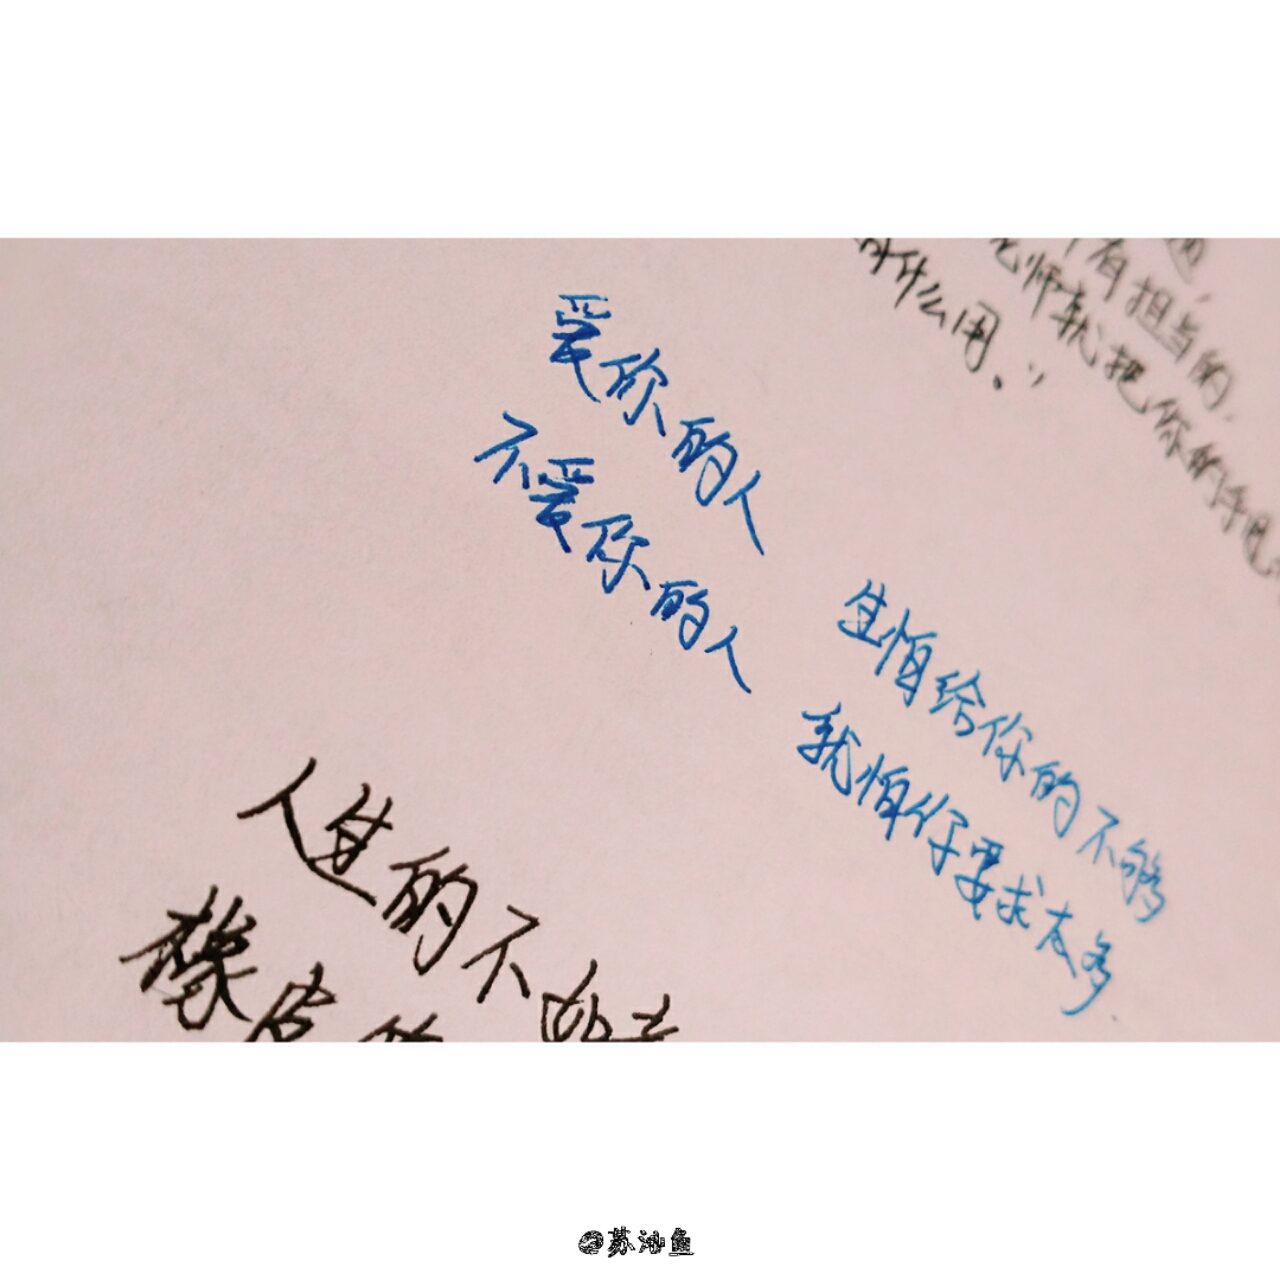 什么用。”
有担当的
老师就把你的手
爱你的人 生怕给你的不够
不爱你的人 就怕你要求太多
人生的不如
橡皮
@苏沁鱼